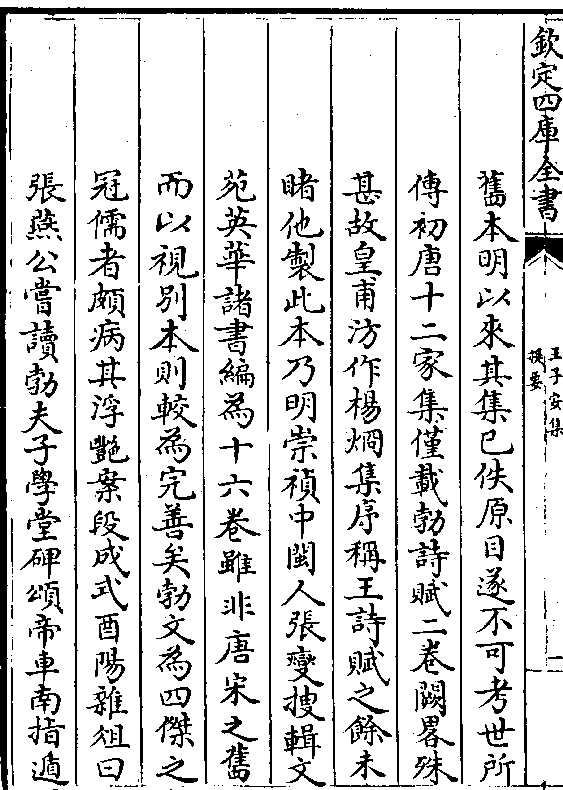 欽定四庫全書
王子安集
提要
舊本明以來其集已佚原目遂不可考世所
傳初唐十二家集僅載勃詩賦二卷闕畧殊
甚故皇甫汸作楊烱集序稱王詩賦之餘未
睹他製此本乃明崇禎中閩人張燮搜輯文
苑英華諸書編為十六卷雖非唐宋之舊
而以視别本則較為完善矣勃文為四傑之
冠儒者頗病其浮艶案段成式酉陽雜俎曰
張燕公嘗讀勃夫子學堂碑頌帝車南指遁